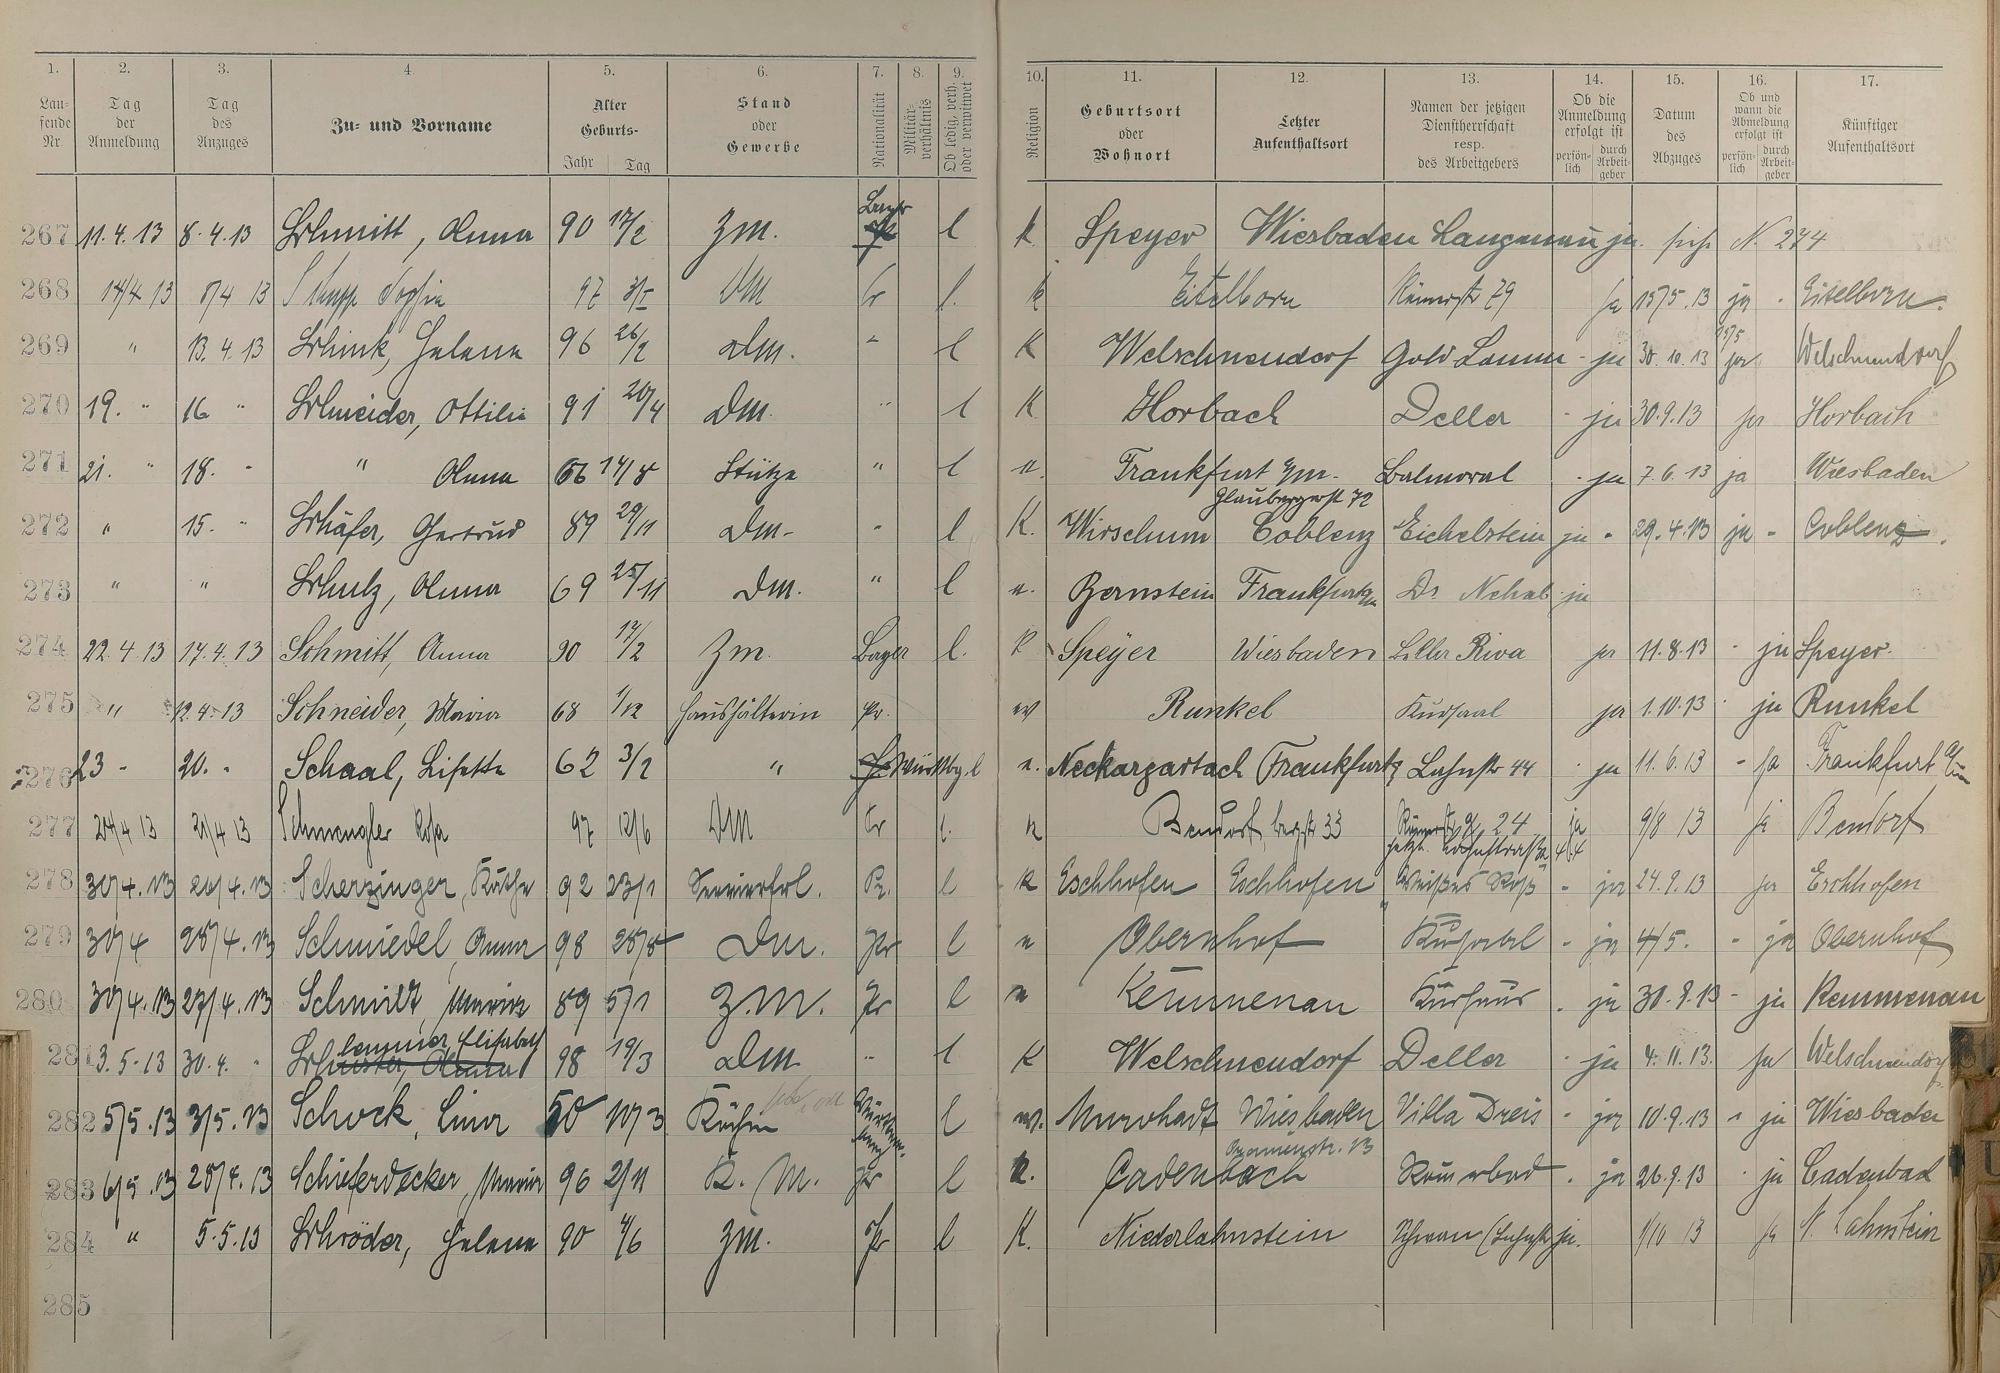 1. 2. 3. 4. 5. 6. 7. 8. 9. 10. 11. 12. 13. 14. 15. 16. 17.
Lau-
fende
Nr.
Tag
der
Anmeldung
Tag
des
Anzuges
Zu- und Vorname
Alter
Geburts-
Jahr Tag
Stand
oder
Gewerbe
Nationalität
Militär-
verhältnis
Ob ledig, verh.
oder verwitwet
Religion
Geburtsort
oder
Wohnort
Letzter
Aufenthaltsort
Namen der jetzigen
Dienstherrschaft
resp.
des Arbeitgebers
Ob die
Anmeldung
erfolgt ist
persön-
lich
durch
Arbeit-
geber
Datum
des
Abzuges
Ob und
wann die
Abmeldung
erfolgt ist
persön-
lich
durch
Arbeit-
geber
Künftiger
Aufenthaltsort
267 11.4.13 8.4.13 Schmitt, Anna 90 17/2 Zm. Bayer l k Speyer Wiesbaden Langenau ja. sieh N. 274
268 14/4 13 8/4 13 Sophie 97 Dm Pr l. k Eitelborn Römerstr 79 ja 15/5.13 ja - Eitelborn.
269 " 13.4.13 Schink, Helene 96 26/2 Dm. " l K Welschneudorf Gold Lamm - ja 30.10.13 ja Welschneudorf
270 19. " 16 " Schneider, Ottilie 91 20/4 Dm. " l K Horbach Deller - ja 30.9.13 ja Horbach
271 21. " 18. " " Anna 66 14/8 Stütze " l e. Frankfurt a/m. Balmoral - ja 7.6.13 ja Wiesbaden
Glaubergerst 72
272 " 15. " Schäfer, Gertrud 89 29/11 Dm. " l K. Wirschum Coblenz Eichelstein ja - 29.4.13 ja - Coblenz.
273 " " Schulz, Anna 69 25/11 Dm. " l e. Bernstein Frankfurt a/m Dr. Nehab ja
274 22.4.13 17.4.13 Schmitt, Anna 90 17/2 Zm. Bayer l. k Speyer Wiesbaden Riva ja 11.8.13 - ja Speyer.
275 " 12.4.13 Schneider, Maria 68 1/12 Haushälterin Pr. ev Runkel Kursaal ja 1.10.13 - ja Runkel
276 23 " 20. " Schaal, Lisette 62 3/2 " Württbg. l e. Neckargartach (Frankfurt) Lahnstr 44 - ja 11.6.13 - ja Frankfurt a/m
277 24/4 13 21/4 13 Schmengler Rosa 97 12/6 DM Pr l. k Bendorf, bergstr 33 Römerstr 24 ja 9/8 13 ja Bendorf
jetzt Lahnstraße 44
278 30/4.13 26/4.13 Scherzinger, Käthe 92 23/1 Servierfrl. Pr. l k Eschhofen Eschhofen "Weißes Roß" - ja 24.9.13 ja Eschhofen
279 30/4 28/4.13 Schmiedel, Anna 98 28/8 Dm. Pr l e Obernhof Kursaal - ja 4/5. - ja Obernhof
280 30/4.13 27/4.13 Schmidt, Maria 89 5/1 Z.M. Pr l e Kemmenau Kurhaus - ja 30.9.13 - ja Kemmenau
281 3.5.13 30.4. " Elisabeth 98 19/3 Dm " l K Welschneudorf Deller - ja 4.11.13. ja Welschneudorf
282 5/5.13 3/5.13 Schock, Lina 50 10/3 Köchin l ev. Murrhadt Wiesbaden Villa Dreis - ja 10.9.13 - ja Wiesbaden
Oranienstr. 13
283 6/5.13 28/4.13 Schieferdecker, Maria 96 2/11 K. M. Pr l k. Cadenbach Römerbad - ja 26.9.13 - ja Cadenbach
284 " 5.5.13 Schröder, Helene 90 4/6 Zm. Pr l K. Niederlahnstein Schwan (Lahnstr ja. 1/10 13 ja N. Lahnstein
285